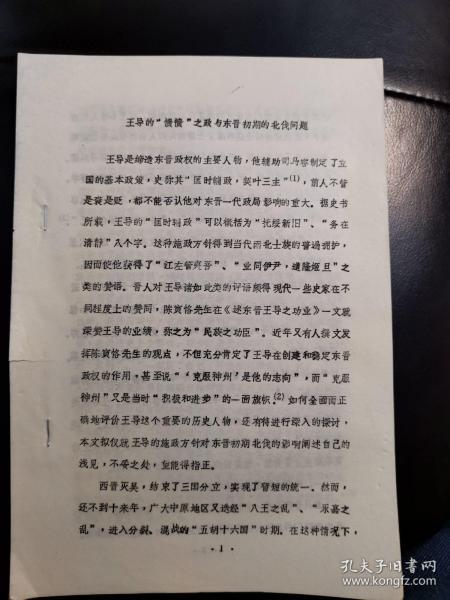 王导的“愦愦”之政与东晋初期的北伐问题
王导是缔造东晋政权的主要人物，他辅助司马睿制定了立
国的基本政策，史称其“匡时辅政，契叶三主”(1)，前人不管
是褒是贬，都不能否认他对东晋一代政局影响的重大。据史书
所载，王导的“匡时辅政”可以概括为“抚绥新旧”、“务在
清静”八个字。这种施政方针得到当代南北士族的普遍拥护，
因而使他获得了“江左管夷吾”、“业同伊尹，道隆姬旦”之
类的赞语。晋人对王导诸如此类的评语颇得现代一些史家在不
同程度上的赞同，陈寅恪先生在《述东晋王导之功业》一文就
深赞王导的业绩，称之为“民族之功臣”。近年又有人撰文发
挥陈寅恪先生的观点，不但充分肯定了王导在创建和稳定东晋
政权的作用，甚至说“‘克服神州’是他的志向”，而“克服
神州”又是当时“积极和进步”的一面旗帜。(2)如何全面而正
确地评价王导这个重要的历史人物，还有待进行深入的探讨，
本文拟仅就王导的施政方针对东晋初期北伐的影响阐述自己的
浅见，不妥之处，望能得指正。
西晋灭吴，结束了三国分立，实现了暂短的统一。然而，
还不到十来年，广大中原地区又迭经“八王之乱”、“永嘉之
乱”，进入分裂、混战的“五胡十六国”时期。在这种情况下，
·1·
孔夫子旧书网
www.kongfz.com